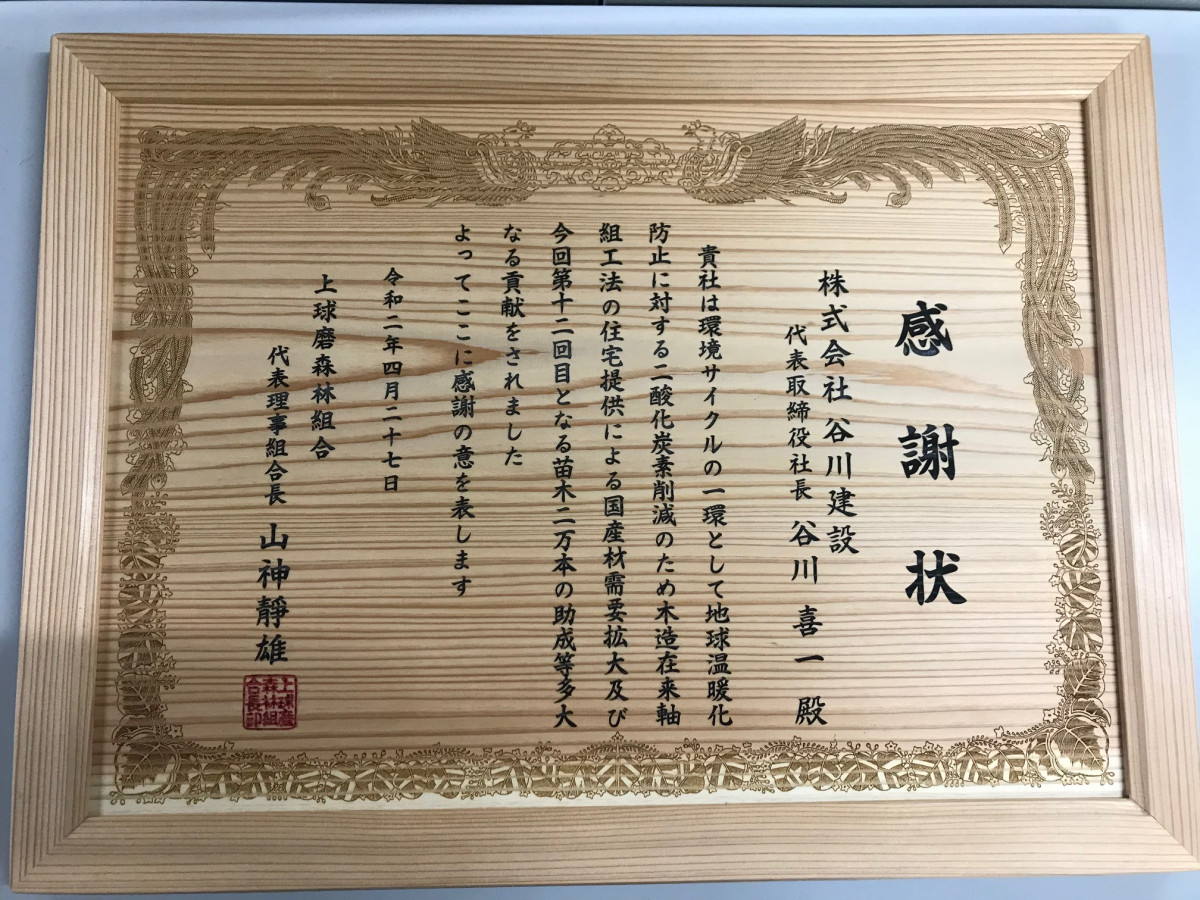 感謝状
株式会社 谷川建設
代表取締役社長 谷川喜一 殿
貴社は環境サイクルの一環として地球温暖化
防止に対する二酸化炭素削減のため木造在来軸
組工法の住宅提供による国産材需要拡大及び
今回第十二回目となる苗木二万本の助成等多大
なる貢献をされました
よってここに感謝の意を表します
令和二年四月二十七日
上球磨森林組合
代表理事組合長 山神靜雄
上球磨
森林組
合長印